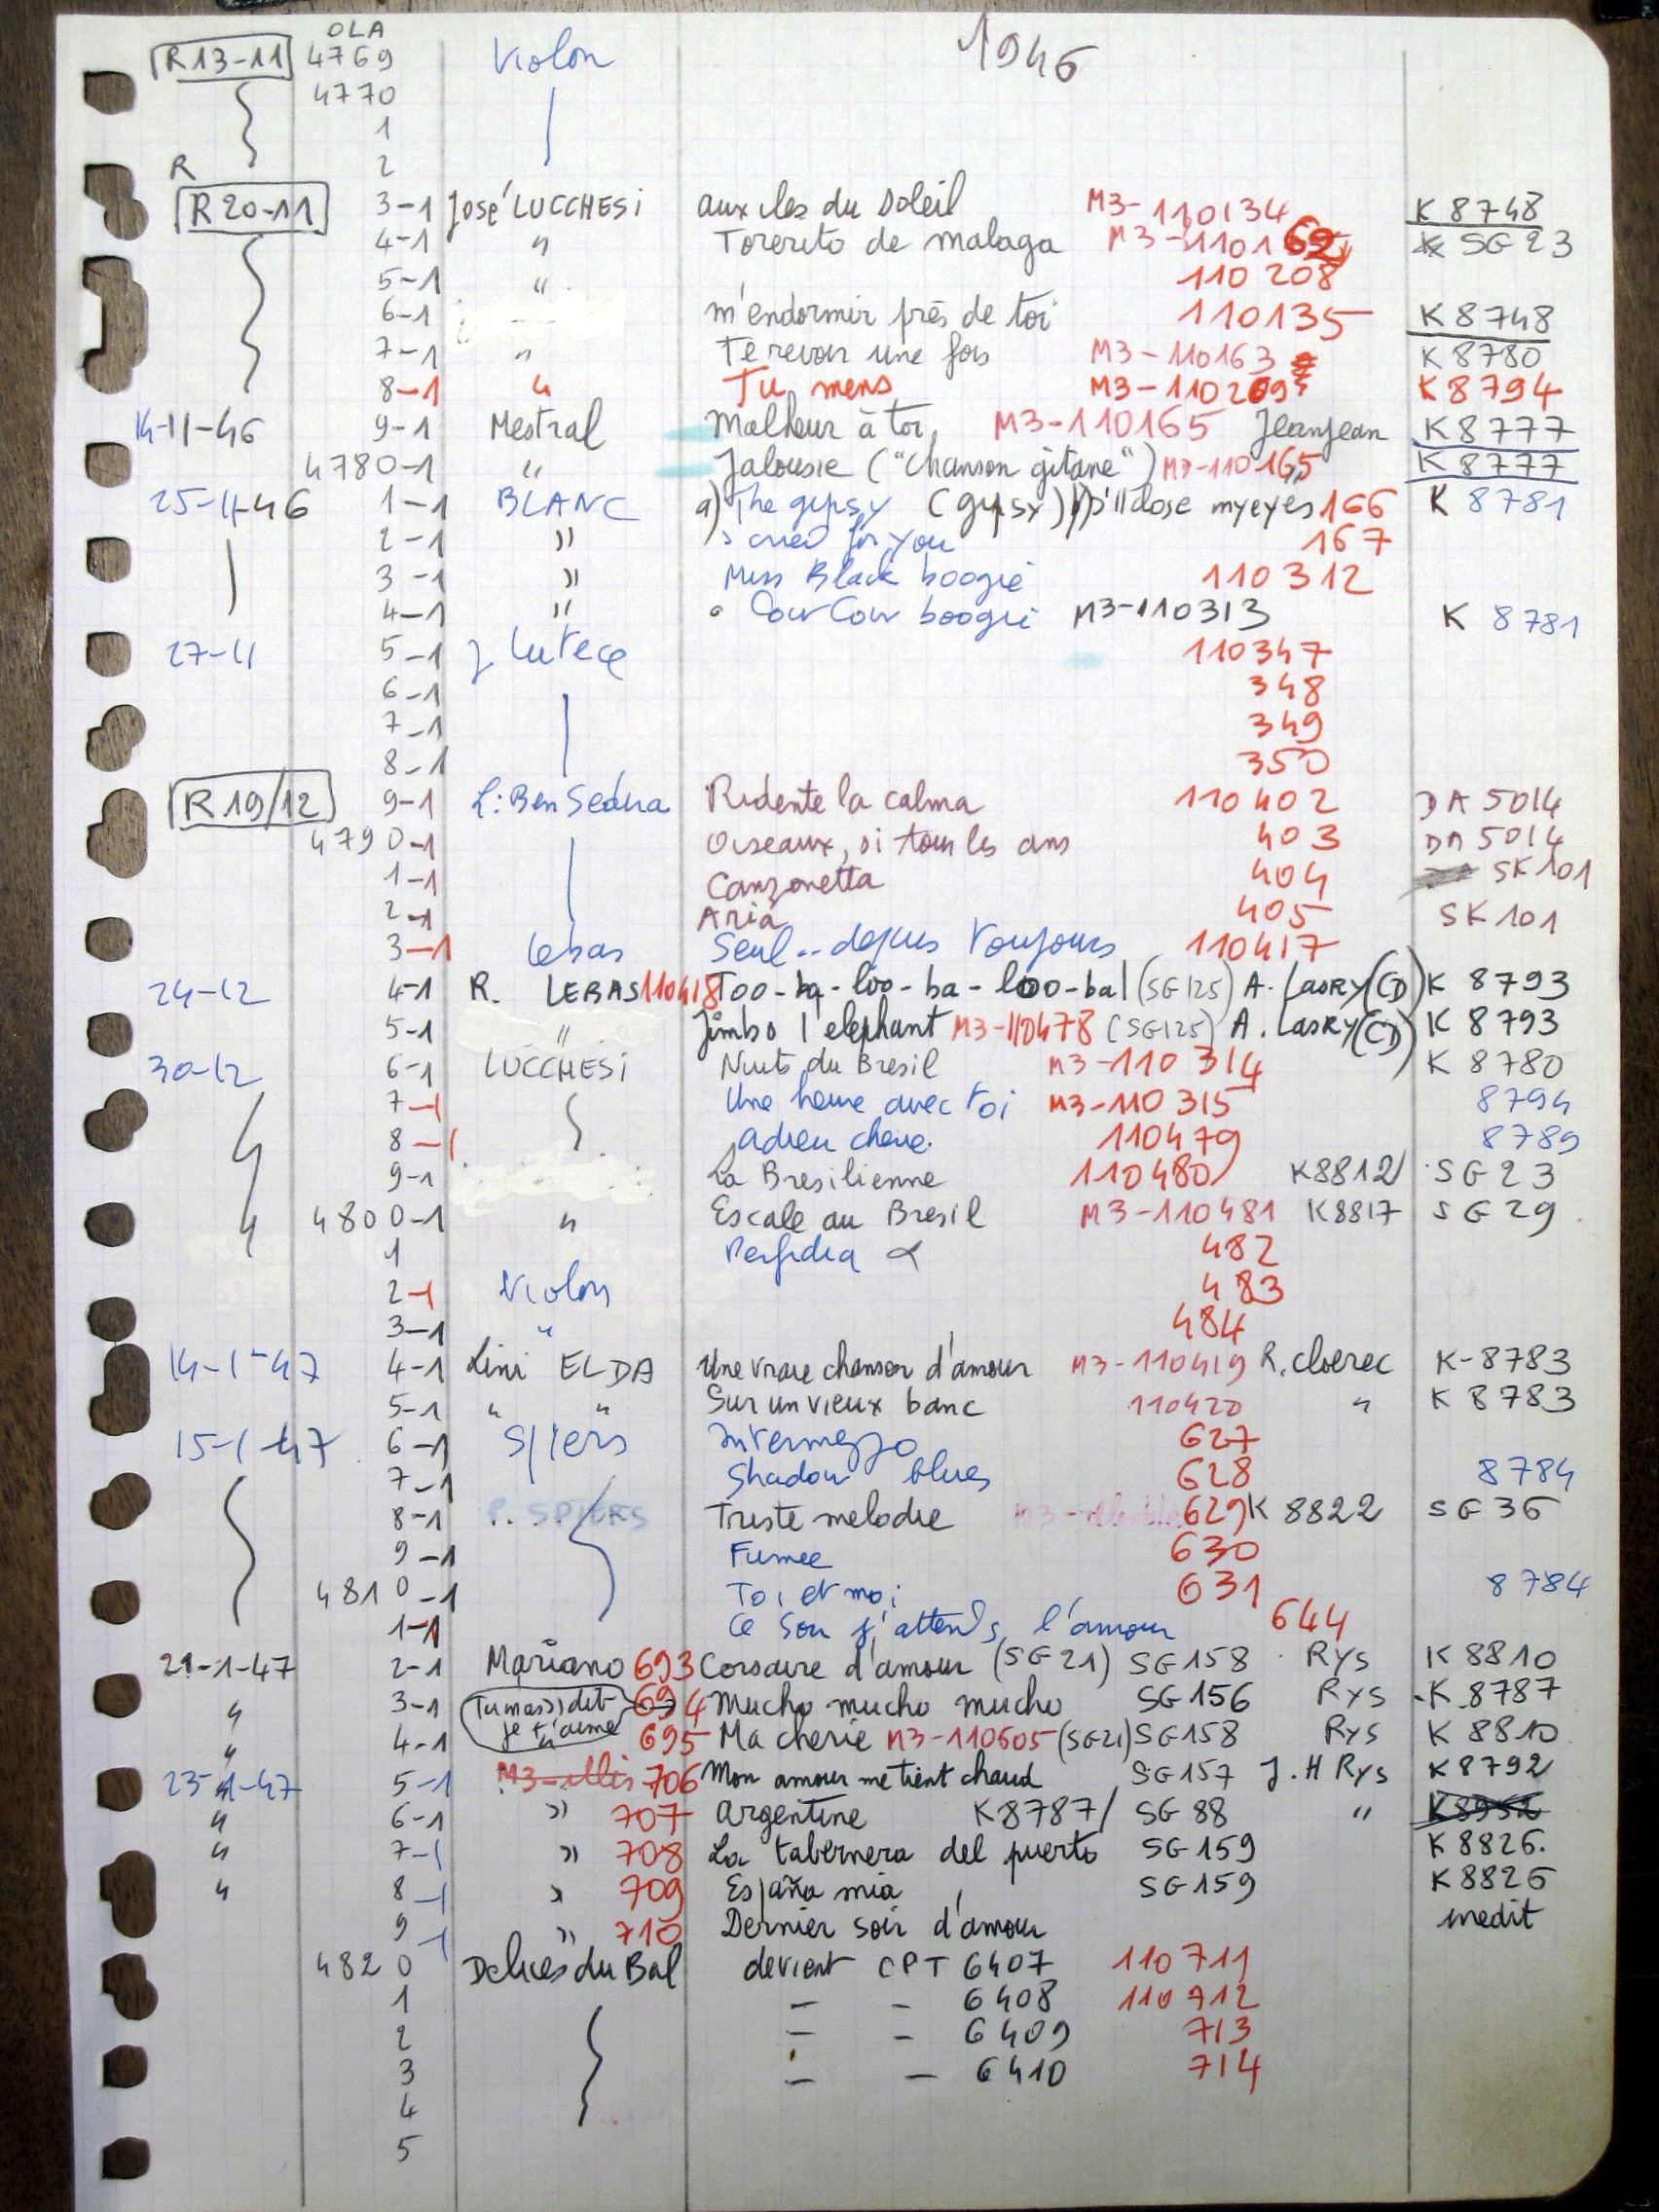 OLA 1946
R13-11 4769 Violon
4770
1
R 2
R 20-11 3-1 José LUCCHESI aux iles du Soleil M3-110134 K 8748
4-1 " Torerito de malaga M3-110162 SG 23
5-1 " 110 208
6-1 m'endormir près de toi 110135 K 8748
7-1 " Te revoir une fois M3-110163 K 8780
8-1 " Tu mens M3-110209 K 8794
14-11-46 9-1 Mestral Malheur à toi, M3-110165 Jeanjean K 8777
4780-1 " Jalousie ("chanson gitane") M3-110165 K 8777
25-11-46 1-1 BLANC a) The gypsy (gypsy) I'll close my eyes 166 K 8781
2-1 " I cried for you 167
3-1 " Miss Black boogie 110 312
4-1 " Cow Cow boogie M3-110313 K 8781
27-11 5-1 J Lutece 110347
6-1 348
7-1 349
8-1 350
R 19/12 9-1 L: Ben Sedira Ridente la calma 110 402 DA 5014
4790-1 Oiseaux, si tous les ans 403 DA 5014
1-1 Canzonetta 404 SK 101
2-1 Aria 405 SK 101
3-1 Lebas Seul.. depuis toujours 110417
24-12 4-1 R. LEBAS 110418 Too-ba-loo-ba-loo-bal (SG 125) A. Lasry (CD) K 8793
5-1 " Jimbo l'elephant M3-110478 (SG125) A. Lasry (CD) K 8793
30-12 6-1 LUCCHESI Nuits du Bresil M3-110 314 K 8780
7-1 Une heure avec toi M3-110 315 8794
8-1 adieu cherie. 110479 8789
9-1 La Bresilienne 110480 K8812/ SG 23
4800-1 " Escale au Bresil M3-110481 K8817 SG 29
1 Perfidia 482
2-1 Violon 483
3-1 " 484
14-1-47 4-1 Lini ELDA Une vraie chanson d'amour M3-110419 R. cloerec K-8783
5-1 " " Sur un vieux banc 110420 " K 8783
15-1-47 6-1 Spiers Intermezzo 627
7-1 Shadow blues 628 8784
8-1 P. SPIERS Triste melodie 629 K 8822 SG 36
9-1 Fumee 630
4810-1 Toi et moi 631 8784
1-1 Ce Soir j'attends l'amour 644
21-1-47 2-1 Mariano 693 Corsaire d'amour (SG 21) SG 158 Rys K 8810
" 3-1 Tu m'as dit je t'aime 694 Mucho mucho mucho SG 156 Rys K 8787
" 4-1 " 695 Ma cherie M3-110605 (SG21) SG158 Rys K 8810
23-1-47 5-1 706 Mon amour me tient chaud SG157 J. H Rys K 8792
" 6-1 " 707 Argentine K8787/ SG 88 " K8952
" 7-1 " 708 La tabernera del puerto SG 159 K 8826.
" 8-1 " 709 España mia SG 159 K 8826
9-1 " 710 Dernier soir d'amour inedit
4820 Delices du Bal devient CPT 6407 110 711
1 – – 6408 110 712
2 – – 6409 713
3 – – 6410 714
4
5